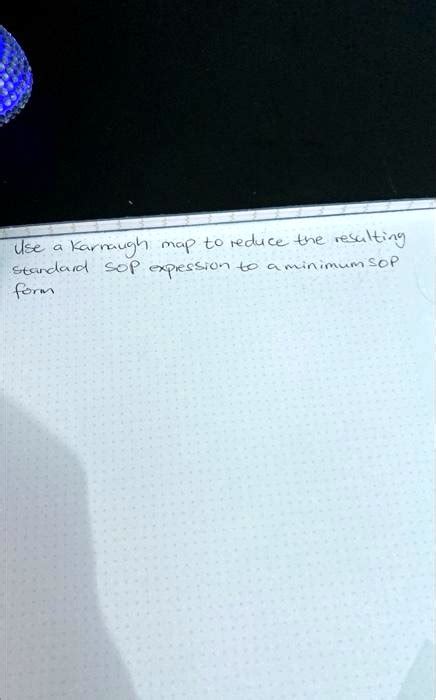 Use a Karnaugh map to reduce the resulting
standard SOP expression to a minimum SOP
form